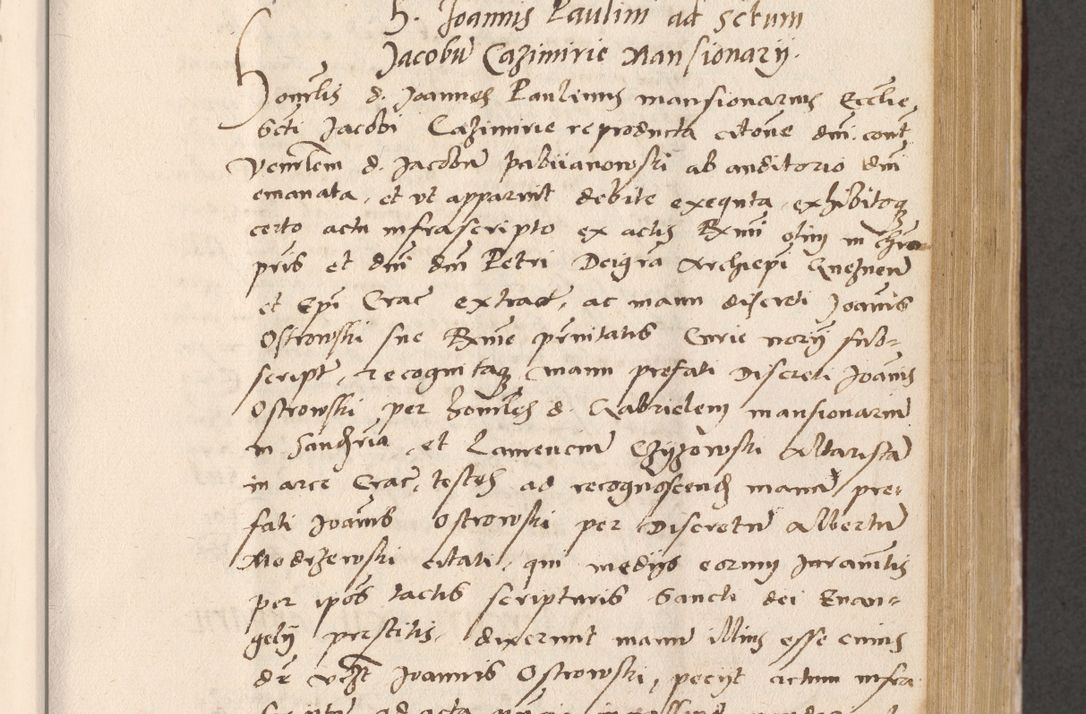 h. Joannis Paulini ad Sctum
Jacobū Cazimirie Mansionarij.
Honorlis d. Joannes Paulinus mansionarius Ecclie
Scti Jacobi Cazimirie reproducta citone dni. cont
Venrlem d. Jacobū Pabiianowski ab auditorio dni
emanata, et ut apparuit debite exequta, exhibitoq
certo actu infrascripto ex actis Rxmi olim in Chro
pris et dni dni Petri Dei gra Archiepi Gneznen
et Epi Crac extract, ac manu discreti Joannis
Ostrowski sue Rxme prnitatis Curie norij sub-
script, recognitaq manu prefati Discreti Joannis
Ostrowski per honorles d. Gabrielem mansionariū
in et Laurenciū Czyzowski Altaristā
in arce Crac, testes ad recognoscend manū pre-
fati Joannis Ostrowski per Discretū Albertū
Modrzewski citati, qui medijs eorum Juramtis
per ipos tactis scripturis Sancti dei Euan-
gelij prestitis, dixerunt manū illius esse cuius
dr Joannis Ostrowski, pecijt actum infra
ad acta